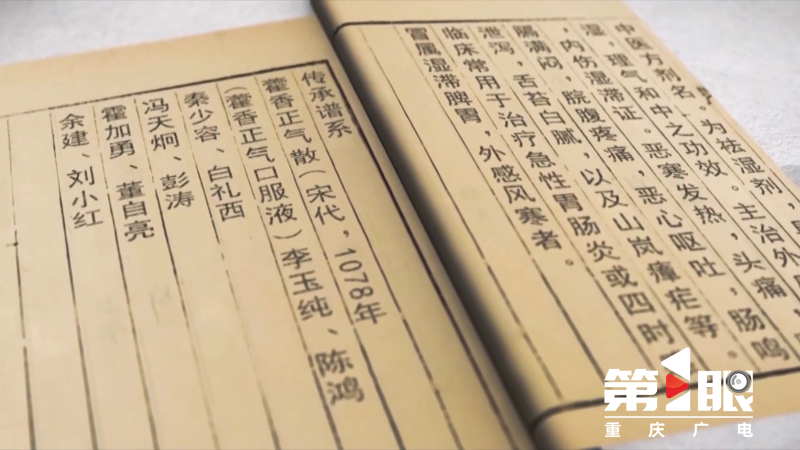 中医方剂名。为祛湿剂,具
湿,理气和中之功效。主治外
,内伤湿滞证。恶寒发热,头痛
膈满闷,脘腹疼痛,恶心呕吐,肠鸣
泄泻,舌苔白腻,以及山岚瘴疟等。
临床常用于治疗急性胃肠炎或四时
冒属湿滞脾胃,外感风寒者。
传承谱系
藿香正气散(宋代,1078年
(藿香正气口服液)李玉纯、陈鸿
秦少容、白礼西
冯天炯、彭涛
霍加勇、董自亮
余建、刘小红
第1眼
重庆广电